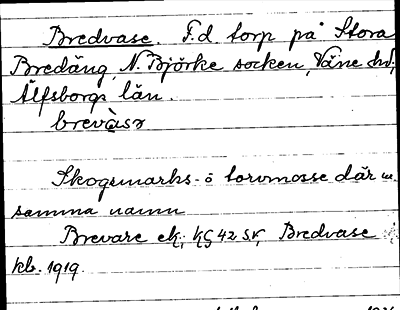 Bredvase. F.d. torp på Stora
Bredäng, N. Björke socken, Väne hd,
Älfsborgs län.
brevàsə
Skogsmarks- o torvmosse där m.
samma namn
Brevare ek, KG 42 SV, Bredvase
kb. 1919.